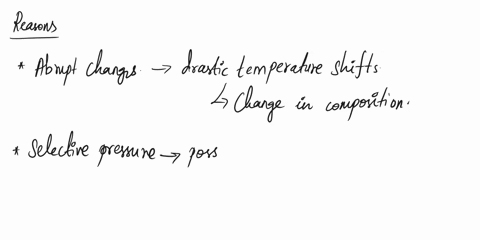 Reasons
* Abrupt changes → drastic temperature shifts
↳ Change in composition.
* Selective pressure → poss